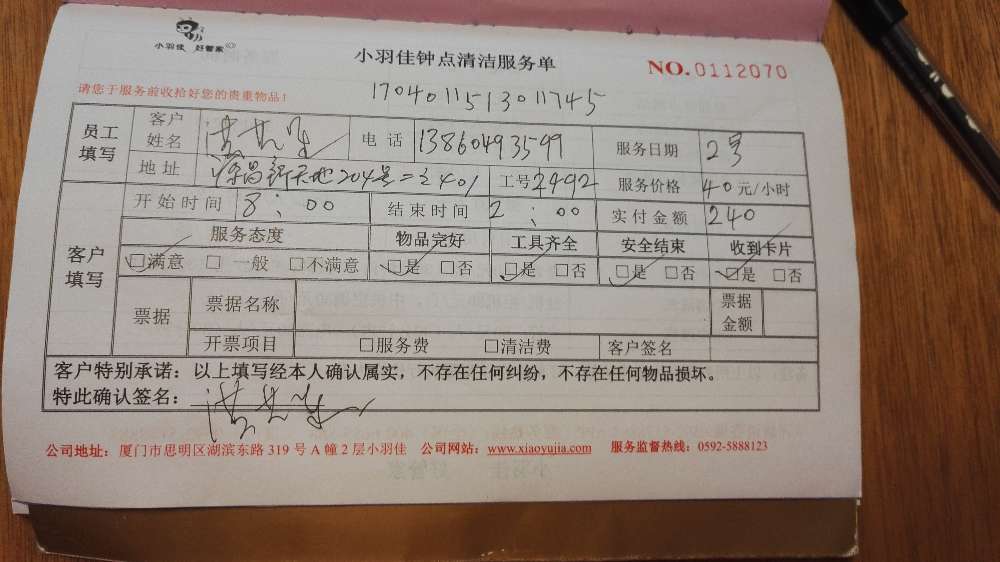 小羽佳 好管家
小羽佳钟点清洁服务单
NO.0112070
请您于服务前收拾好您的贵重物品!
1704011513011745
员工填写 客户姓名 电话 13860493599 服务日期 2号
地址 新天地204号二之401 工号 2492 服务价格 40元/小时
客户填写 开始时间 8:00 结束时间 2:00 实付金额 240
服务态度 物品完好 工具齐全 安全结束 收到卡片
☑满意 □一般 □不满意 ☑是 □否 ☑是 □否 ☑是 □否 ☑是 □否
票据 票据名称 票据金额
开票项目 □服务费 □清洁费 客户签名
客户特别承诺：以上填写经本人确认属实，不存在任何纠纷，不存在任何物品损坏。
特此确认签名：
公司地址：厦门市思明区湖滨东路319号A幢2层小羽佳 公司网站：www.xiaoyujia.com 服务监督热线：0592-5888123